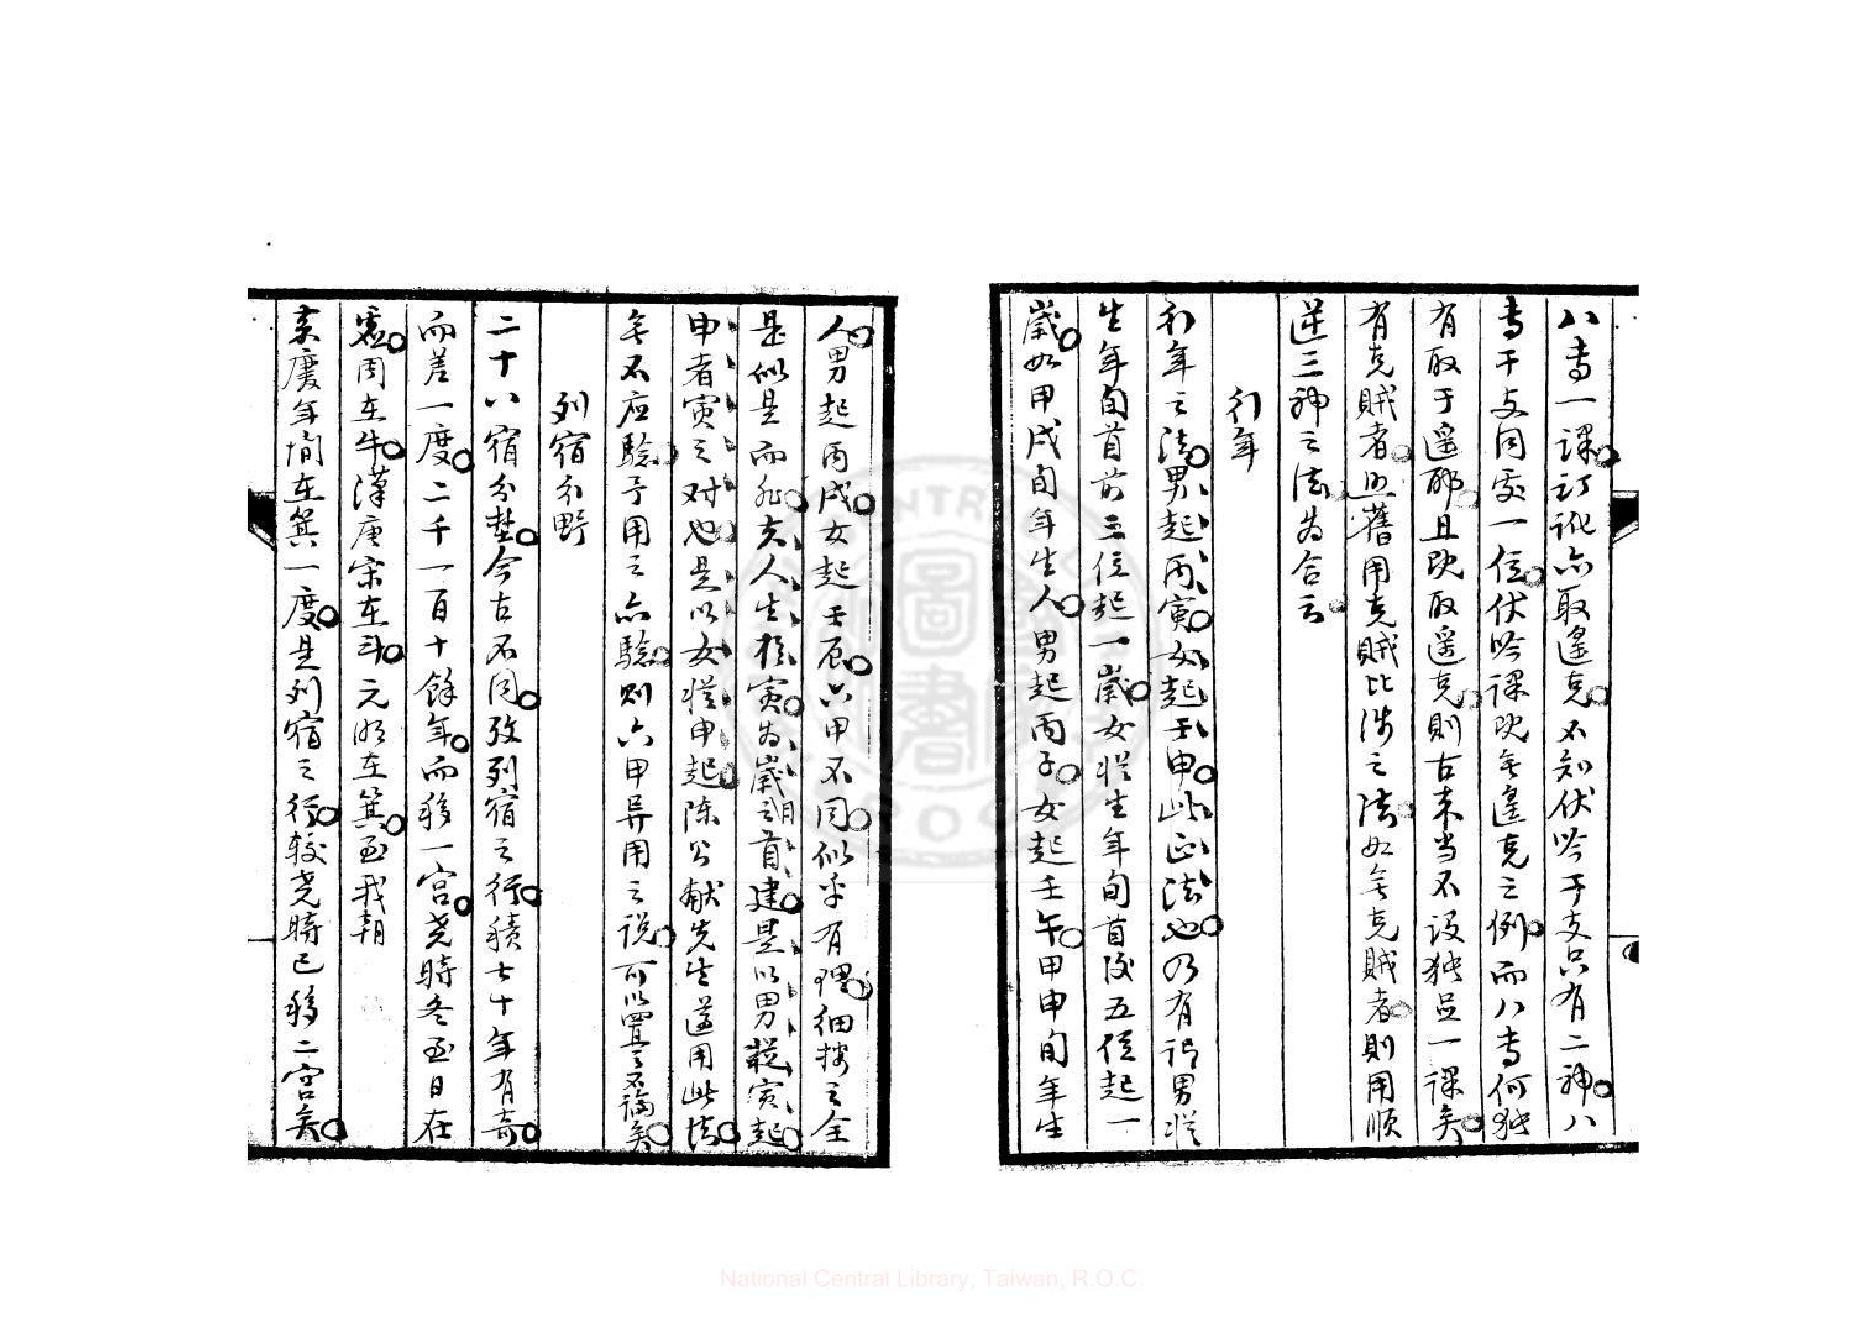 八专一課訂訛亦取遙克不知伏吟干支只有二神八
专干支同處一位伏吟課既無遙克之例而八专何独
有取于遙耶且既取遙克則古来当不設独足一課矣
有克賊者照舊用克賊比涉之法如無克賊者則用順
逆三神之法为合云
行年
行年之法男起丙寅女起壬申此正法也乃有謂男從
生年旬首前三位起一歲女從生年旬首後五位起一
歲如甲戌旬年生人男起丙子女起壬午甲申旬年生
人男起丙戌女起壬辰六甲不同似乎有理細揆之全
是似是而非夫人生於寅为歲朝之首建是以男從寅起
申者寅之对也是以女從申起陈公献先生遵用此法
無不应驗予用之亦驗則六甲异用之说可以置之不論矣
列宿分野
二十八宿分埜今古不同攷列宿之行積七十年有奇
而差一度二千一百十餘年而移一宮堯時冬至日在
虛周在牛漢唐宋在斗元明在箕至我朝
嘉慶年間在箕一度是列宿之行較堯時已移二宮矣
National Central Library, Taiwan, R.O.C.